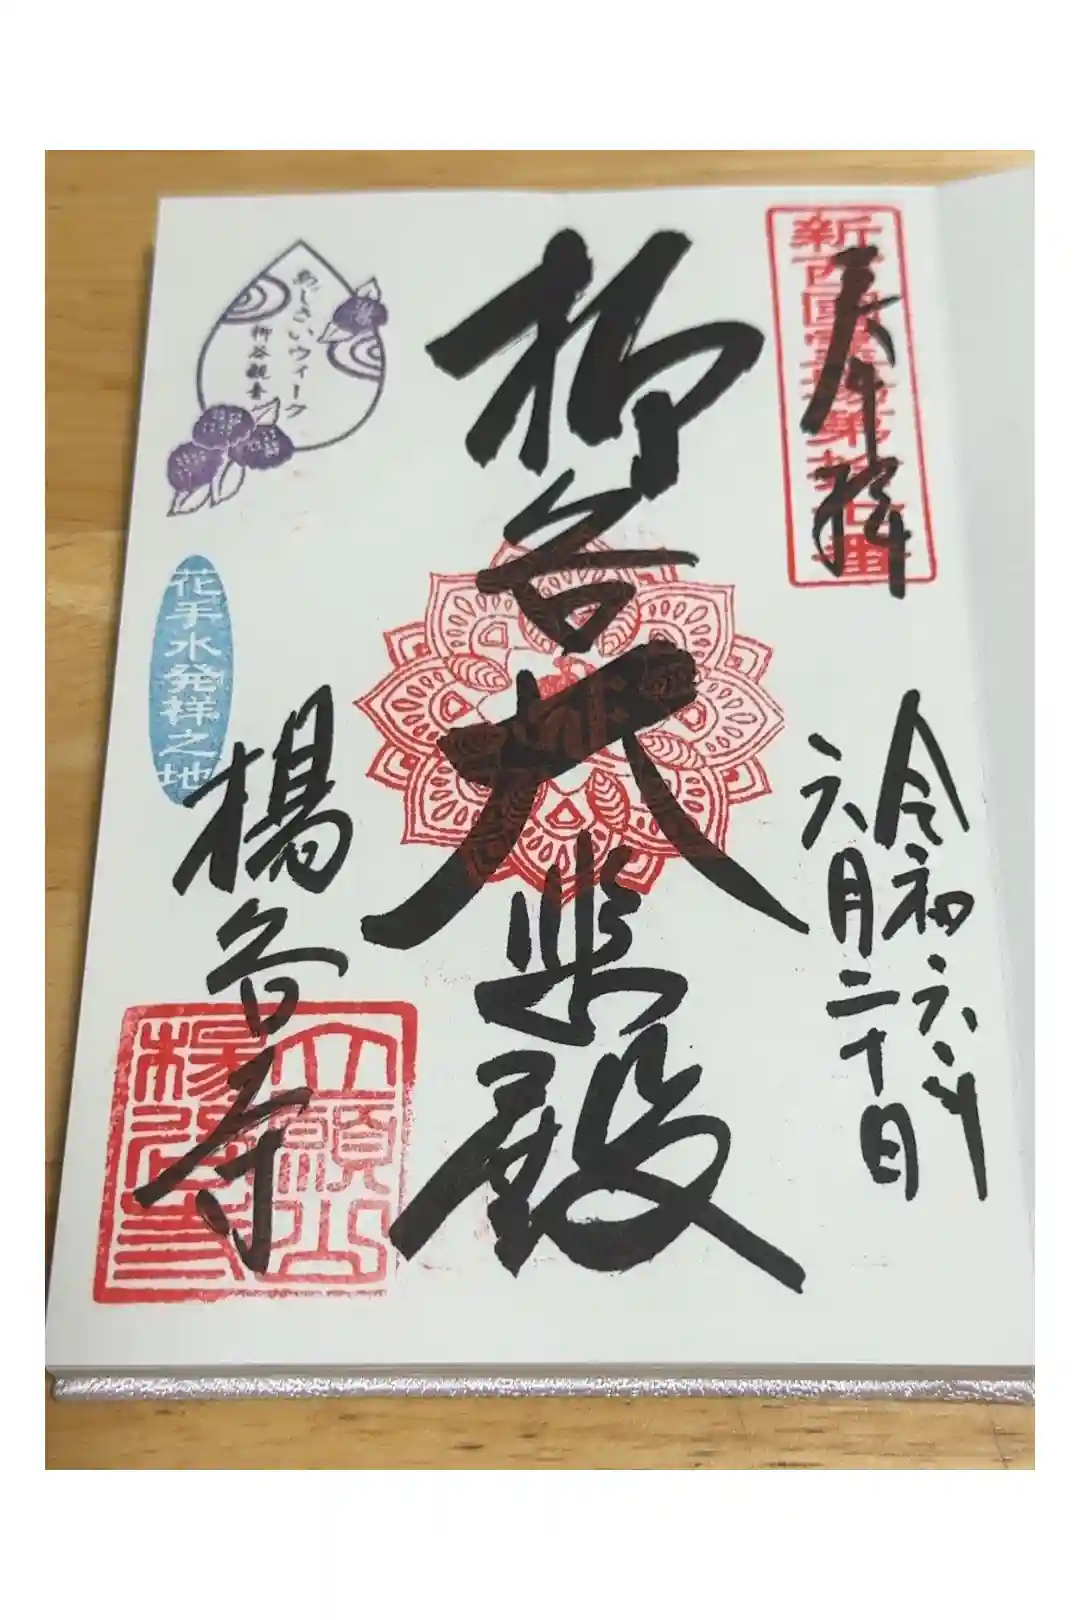 奉拝
新西國霊場第拾七番
令和六年
六月二十日
柳谷大悲殿
あじさいウィーク
柳谷観音
花手水発祥之地
楊谷寺
立願山
楊谷寺